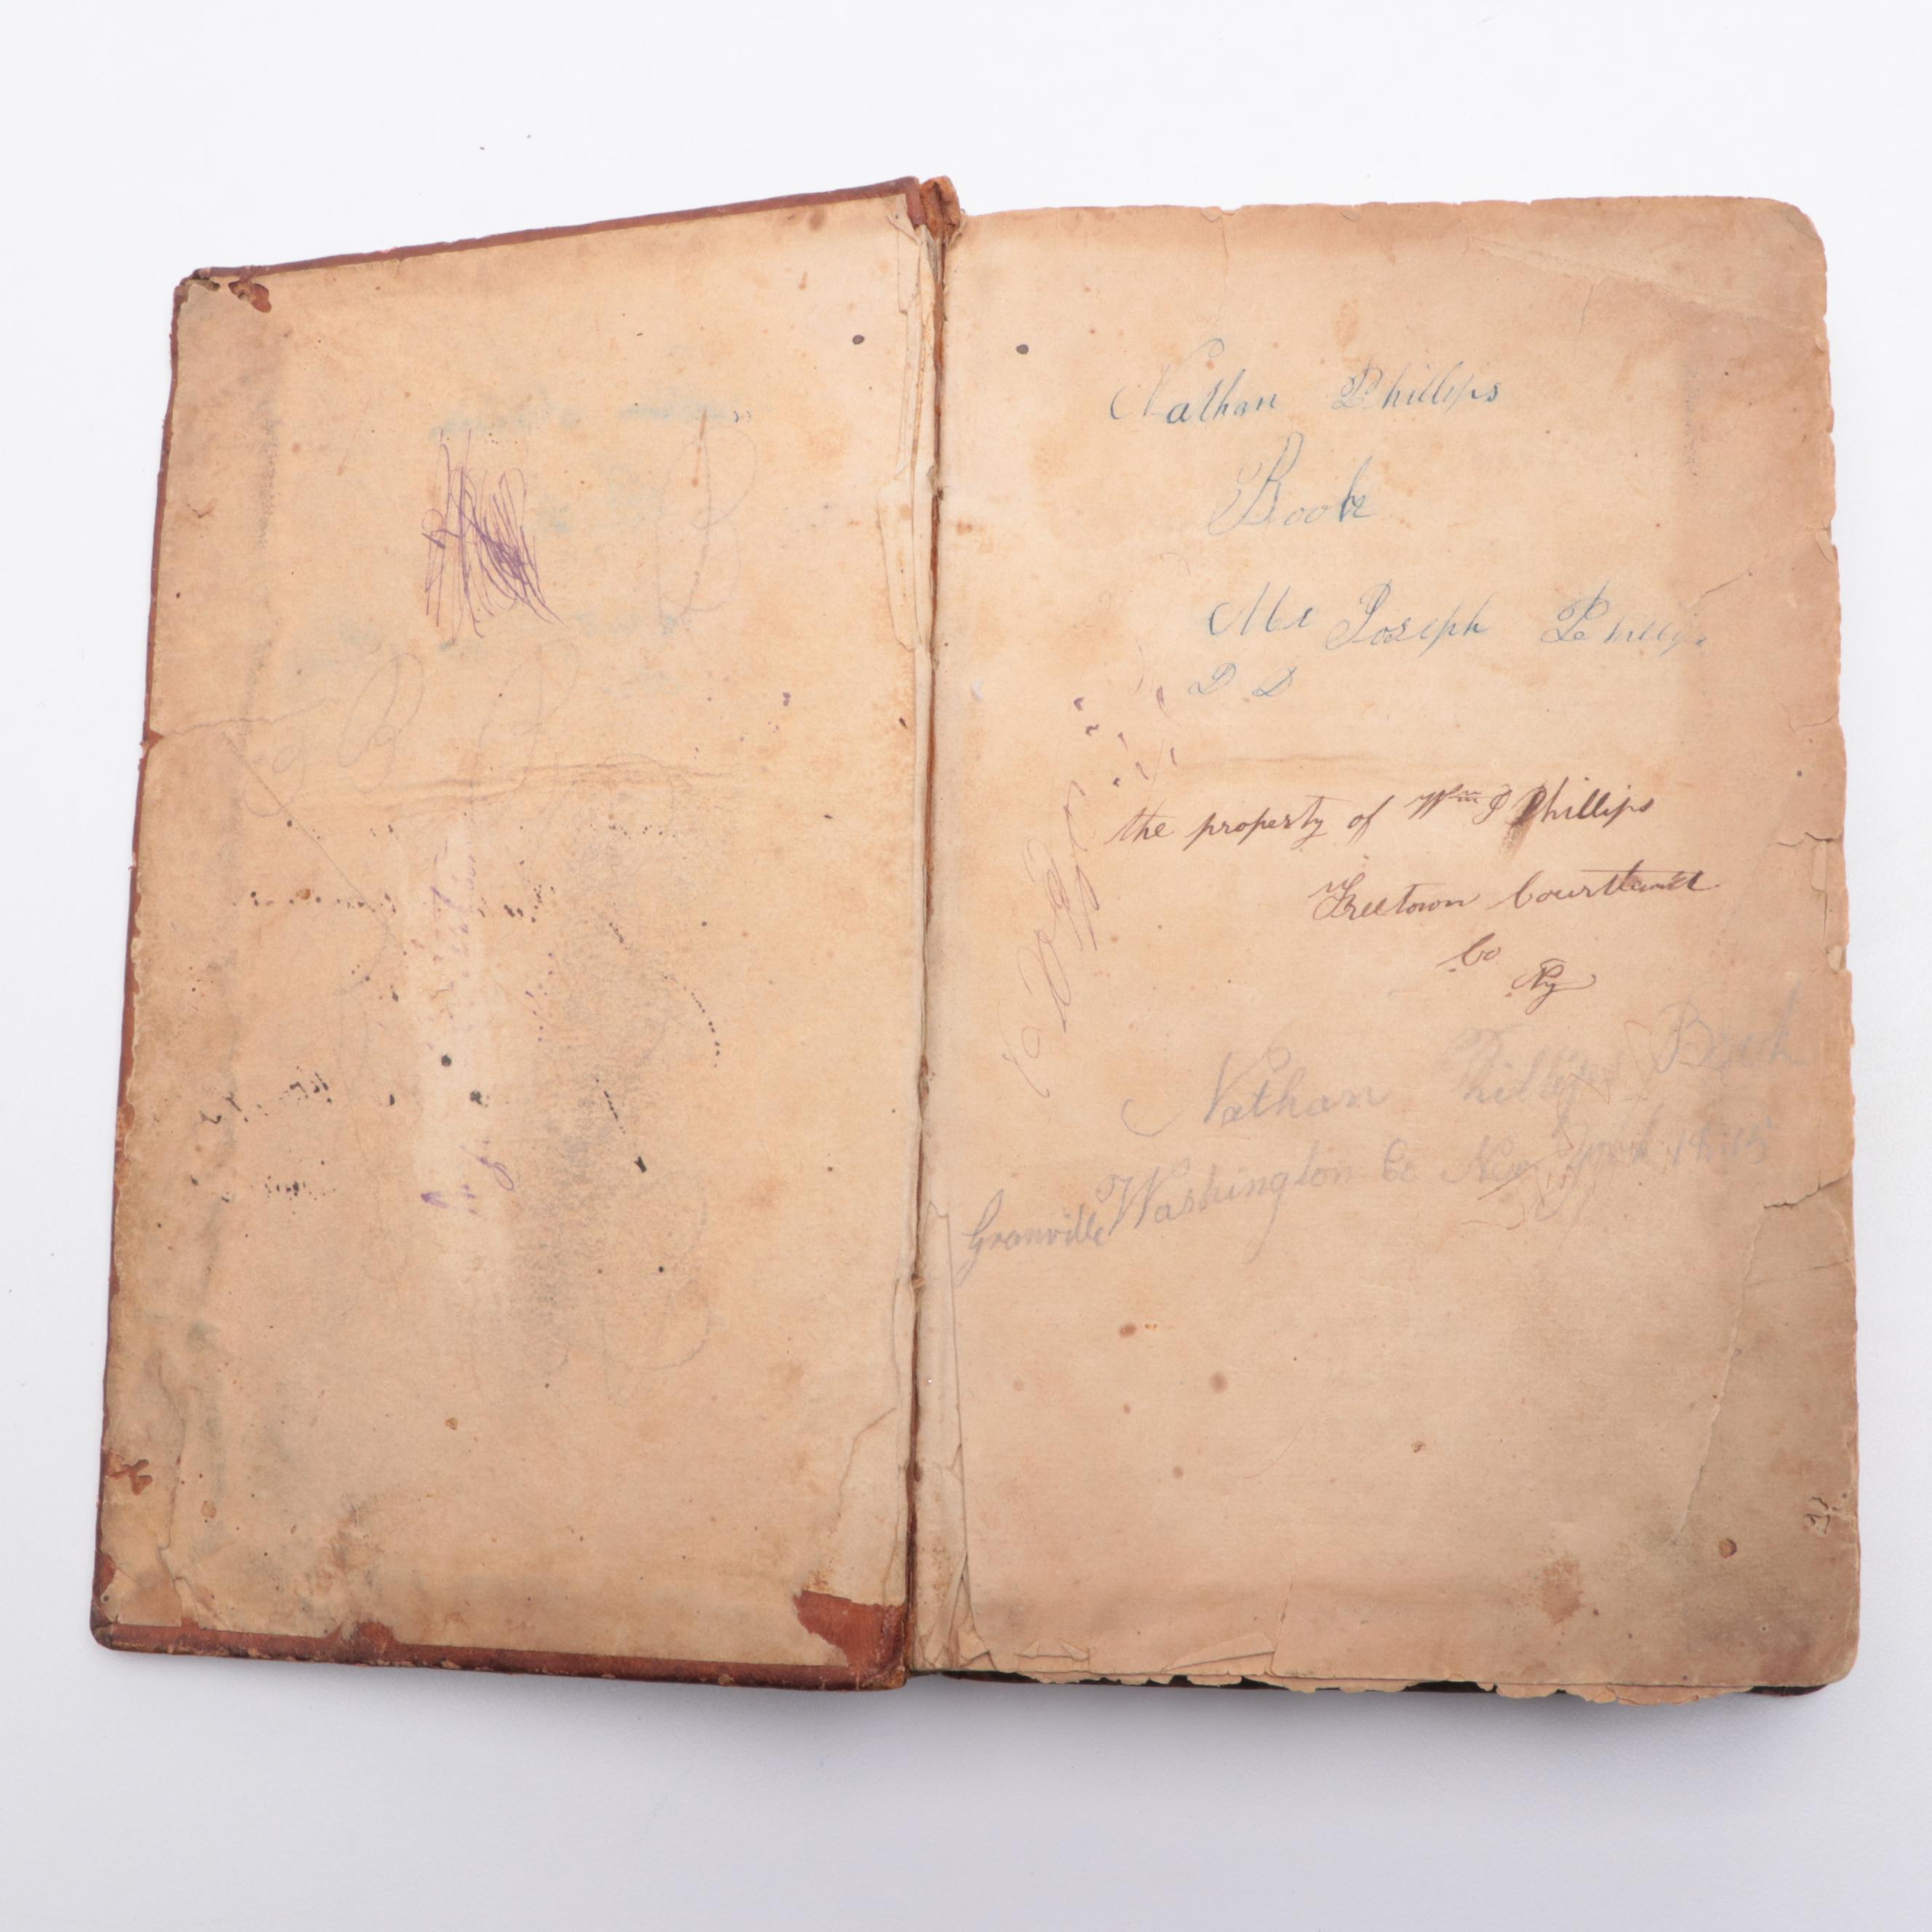 Nathan Phillips
Book
Mr Joseph Phillips
D D
the property of Wm P Phillips
Freetown Courtlandt
Co
Ny
Nathan Phillips Book
Granville Washington Co New York